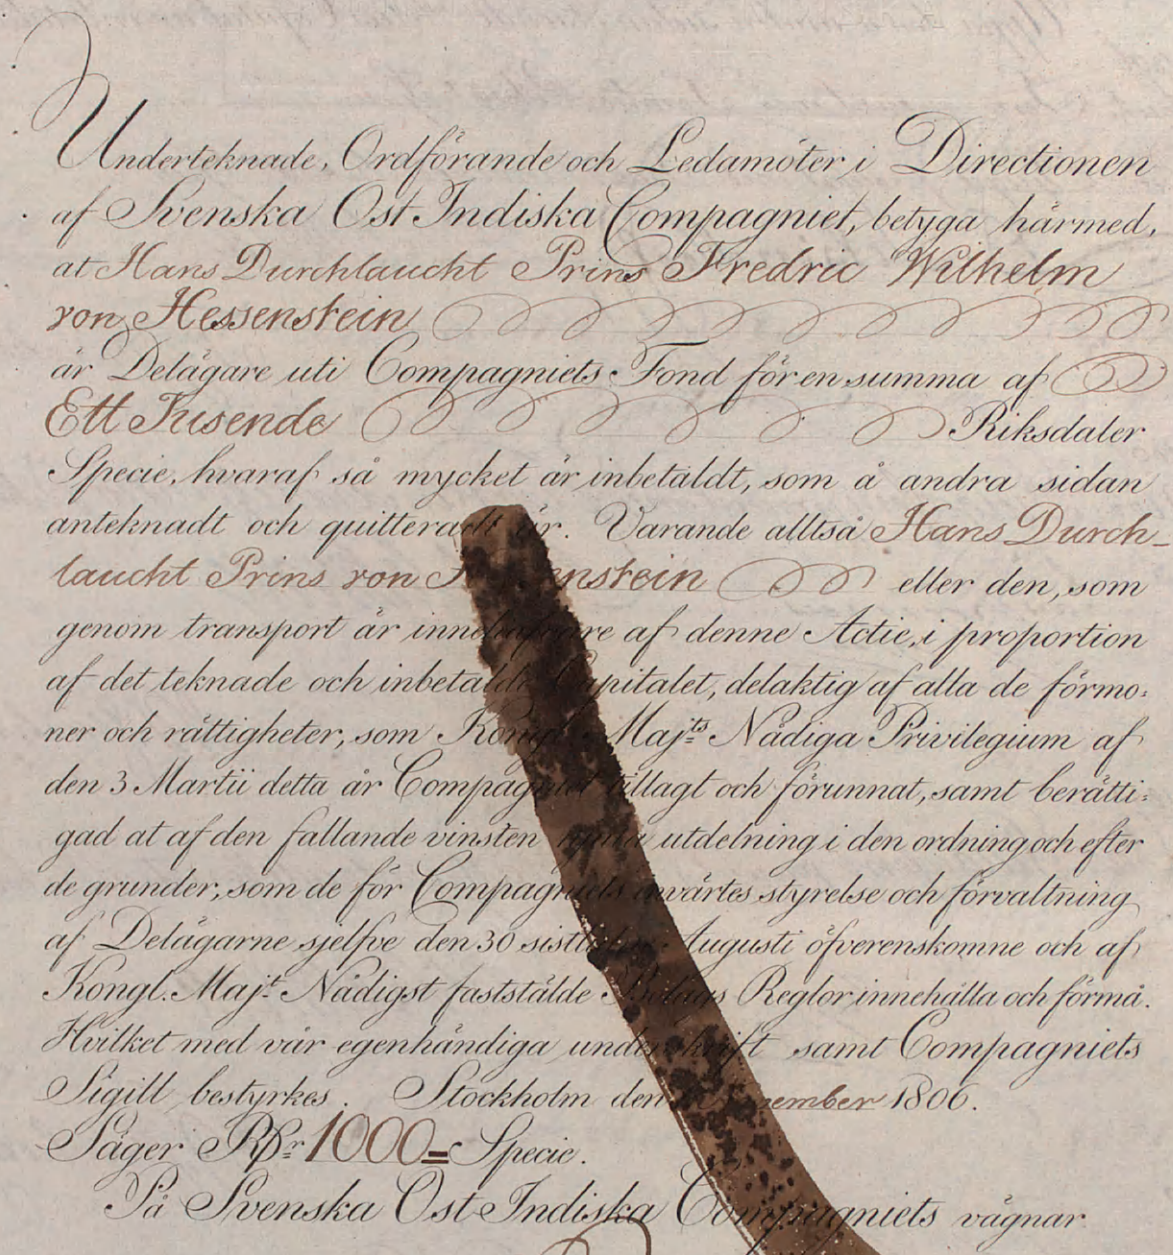 Underteknade, Ordförande och Ledamöter i Directionen
af Svenska Ost Indiska Compagniet, betyga härmed,
at Hans Durchlaucht Prins Fredric Wilhelm
von Hessenstein
är Delägare uti Compagniets Fond för en summa af
Ett Tusende Riksdaler
Specie, hvaraf så mycket är inbetäldt, som å andra sidan
anteknadt och quitteradt är. Varande alltså Hans Durch-
laucht Prins von Hessenstein eller den, som
genom transport är innehafvare af denne Actie, i proportion
af det teknade och inbetalde Capitalet, delaktig af alla de förmo:
ner och rättigheter, som Kongl. Maj:ts Nådiga Privilegium af
den 3 Martii detta år Compagniet tillagt och förunnat, samt berätti:
gad at af den fallande vinsten utdelning i den ordning och efter
de grunder, som de för Compagniets invärtes styrelse och förvaltning
af Delägarne sjelfve den 30 sistledne Augusti öfverenskomne och af
Kongl. Maj:t Nådigst faststälde Bolags Reglor innehålla och förmå.
Hvilket med vår egenhändiga underskrift samt Compagniets
Sigill bestyrkes. Stockholm den 1806.
Säger Rdr 1000 = Specie.
På Svenska Ost Indiska Compagniets vägnar